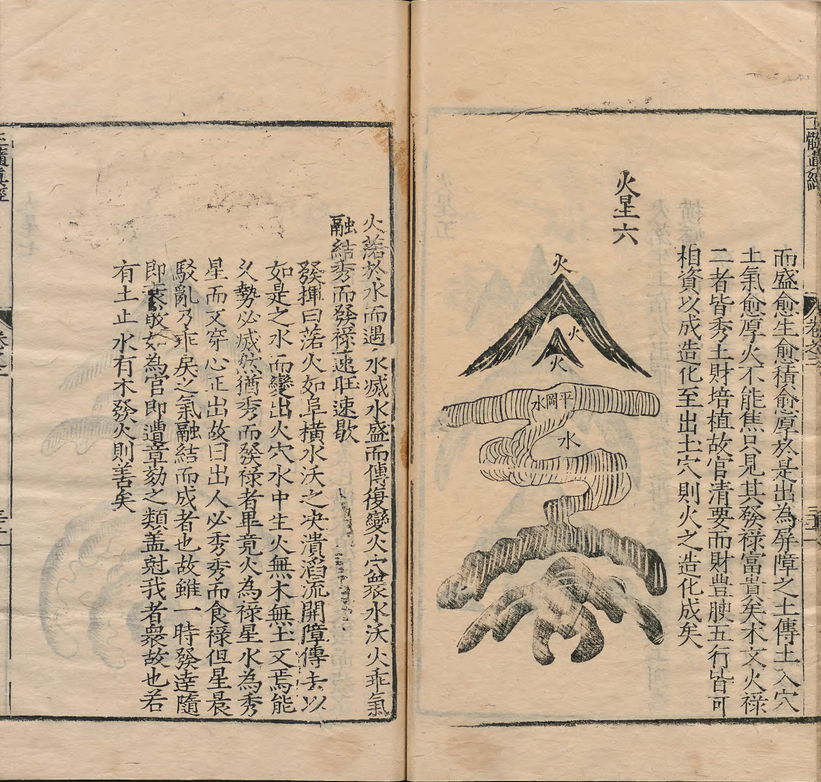 玉髓真經
卷之二
而盛愈生愈積愈厚於是出為屏障之土傳土入穴
土氣愈厚火不能焦只見其發祿富貴矣木文火祿
二者皆秀土財培植故官清要而財豊腴五行皆可
相資以成造化至出土穴則火之造化成矣
火星六
火
火
火
平岡水
水
火落於水而遇水烕水盛而傳復變火穴盆泵水沃火乖氣
融結秀而發祿速旺速歇
發揮曰落火如阜橫水沃之决潰滔流開障傳去以
如是之水而變出火穴水中生火無木無土又焉能
乆勢必烕然猶秀而發祿者畢竟火為祿星水為秀
星而又穿心正出故曰出人必秀秀而食祿但星辰
駁亂乃乖戾之氣融結而成者也故雖一時發達隨
即衰敗如為官即遭章劾之類盖尅我者衆故也若
有土止水有木發火則善矣
玉髓真經
卷之二